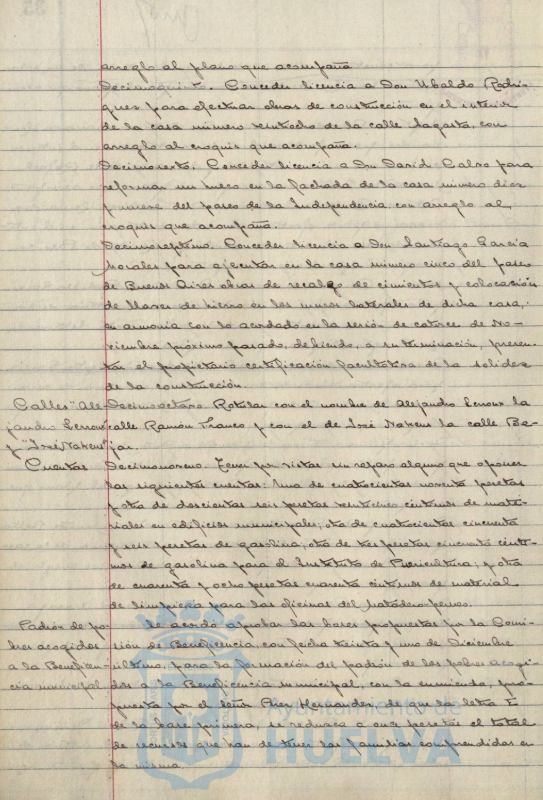 arreglo al plano que acompaña
Decimoquinto. Conceder licencia a Don Ubaldo Rodri-
guez para efectuar obras de construcción en el interior
de la casa número veintiocho de la calle Sagasta, con
arreglo al croquis que acompaña.
Decimosexto. Conceder licencia a Don David Calvo para
reformar un hueco en la fachada de la casa número diez
y nueve del paseo de la Independencia, con arreglo al
croquis que acompaña.
Decimoseptimo. Conceder licencia a Don Santiago Garcia
Morales para ejecutar en la casa número cinco del paseo
de Buenos Aires obras de recalzo de cimientos y colocación
de llaves de hierro en los muros laterales de dicha casa,
en armonia con lo acordado en la sesión de catorce de No-
viembre próximo pasado, debiendo, a su terminación, presen-
tar el propietario certificación facultativa de la solidez
de la construcción.
Calles "Ale- Decimoctavo Rotular con el nombre de Alejandro Lerroux la
jandro Lerroux calle Ramón Franco y con el de José Nakens la calle Be-
y "José Nakens" jar.
Cuentas Decimonoveno. Tener por vistas sin reparo alguno que oponer
las siguientes cuentas: Una de cuatrocientas noventa pesetas
y otra de doscientas seis pesetas veinticinco centimos de mate-
riales en edificios municipales; otra de cuatrocientas cincuenta
y seis pesetas de gasolina; otra de tres pesetas cincuenta cénti-
mos de gasolina para el Instituto de Puericultura; y otra
de cuarenta y ocho pesetas cuarenta centimos de material
de limpieza para las oficinas del matadero
Padrón de po- Se acordó aprobar las bases propuestas por la Comi-
bres acogidos sión de Beneficencia, con fecha treinta y uno de Diciembre
a la Beneficen- último, para la formación del padrón de los pobres acogi-
cia municipal dos a la Beneficencia municipal, con la enmienda, pro-
puesta por el señor Perez Hernandez, de que la letra E
de la base primera, se reduzca a once pesetas el total
de recursos que han de tener las familias comprendidas en
la misma.
Ayuntamiento de
HUELVA